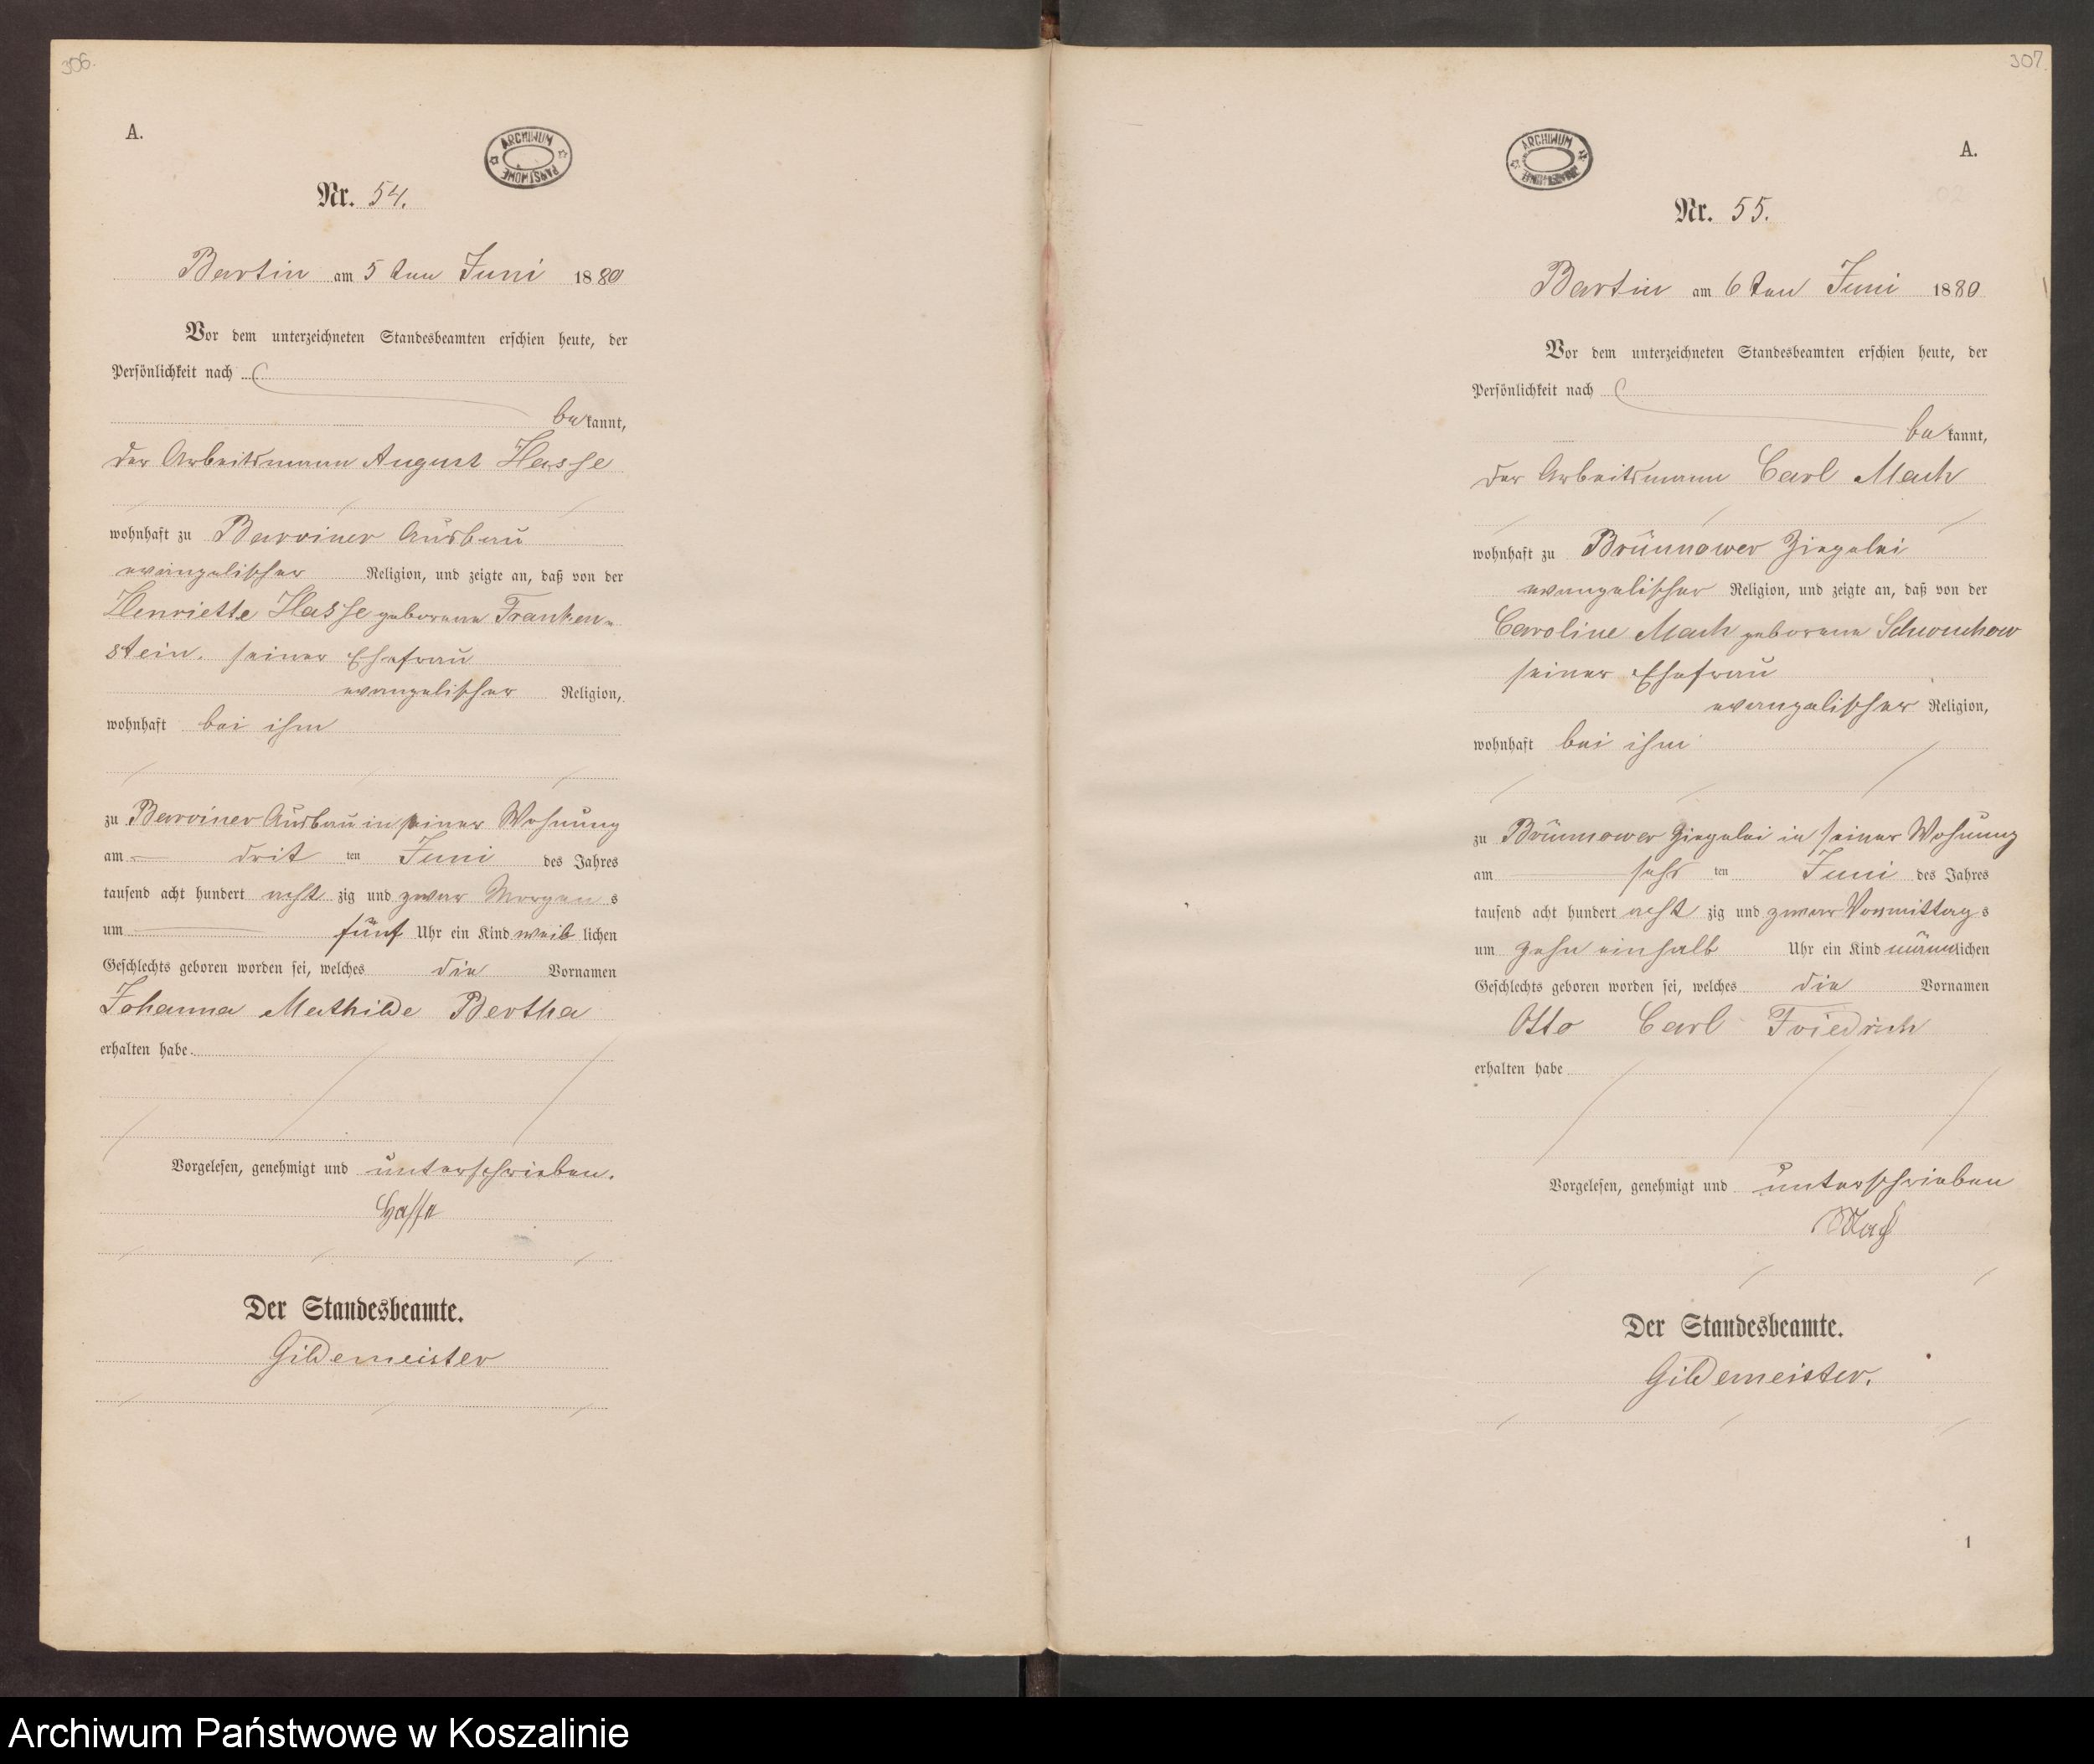 306.
A.
ARCHIWUM PAŃSTWOWE
Nr. 54.
Bartin am 5 ten Juni 1880
Vor dem unterzeichneten Standesbeamten erschien heute, der
Persönlichkeit nach
bekannt,
der Arbeitsmann August Hasse
wohnhaft zu Barviner Ausbau
evangelischer Religion, und zeigte an, daß von der
Henriette Hasse geborene Franken-
stein. seiner Ehefrau
evangelischer Religion,
wohnhaft bei ihm
zu Barviner Ausbau in seiner Wohnung
am drit ten Juni des Jahres
tausend acht hundert acht zig und zwar Morgen s
um fünf Uhr ein Kind weib lichen
Geschlechts geboren worden sei, welches die Vornamen
Johanna Mathilde Bertha
erhalten habe.
Vorgelesen, genehmigt und unterschrieben.
Hasse
Der Standesbeamte.
Gildemeister
307
A.
ARCHIWUM
Nr. 55.
Bartin am 6 ten Juni 1880
Vor dem unterzeichneten Standesbeamten erschien heute, der
Persönlichkeit nach
bekannt,
der Arbeitsmann Carl Mach
wohnhaft zu Brünnower Ziegelei
evangelischer Religion, und zeigte an, daß von der
Caroline Mach geborene Schwuchow
seiner Ehefrau
evangelischer Religion,
wohnhaft bei ihm
zu Brünnower Ziegelei in seiner Wohnung
am sechs ten Juni des Jahres
tausend acht hundert acht zig und zwar Vormittag s
um zehn einhalb Uhr ein Kind männlichen
Geschlechts geboren worden sei, welches die Vornamen
Otto Carl Friedrich
erhalten habe
Vorgelesen, genehmigt und unterschrieben
Mach
Der Standesbeamte.
Gildemeister.
1
Archiwum Państwowe w Koszalinie